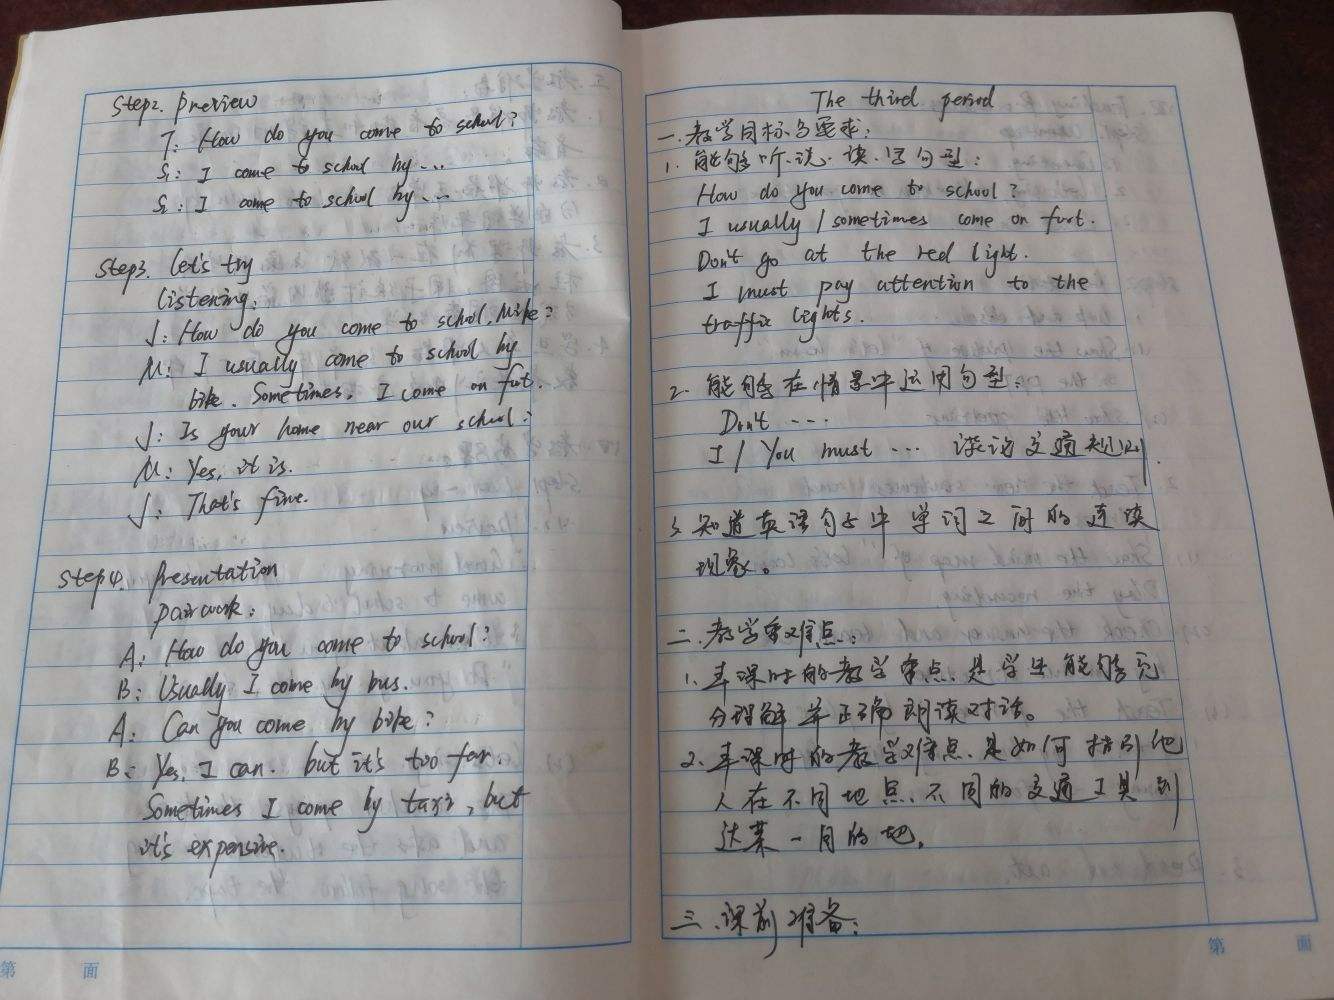 Step2. Preview
T: How do you come to school?
S1: I come to school by ...
S2: I come to school by ...
Step3. Let's try
Listening:
J: How do you come to school, Mike?
M: I usually come to school by
bike. Sometimes, I come on foot.
J: Is your home near our school?
M: Yes, it is.
J: That's fine.
Step4. Presentation
Pairwork:
A: How do you come to school?
B: Usually I come by bus.
A: Can you come by bike?
B: Yes, I can. but it's too far.
Sometimes I come by taxi, but
it's expensive.
第 面
The third period
一.教学目标与要求:
1. 能够听、说、读、写句型:
How do you come to school?
I usually / sometimes come on foot.
Don't go at the red light.
I must pay attention to the
traffic lights.
2. 能够在情景中运用句型:
Don't ...
I / You must ... 谈论交通规则.
3. 知道英语句子中单词之间的连读
现象。
二.教学重难点:
1. 本课时的教学重点是学生能够充
分理解并正确朗读对话。
2. 本课时的教学难点是如何指引他
人在不同地点、不同的交通工具到
达某一目的地。
三.课前准备:
第 面